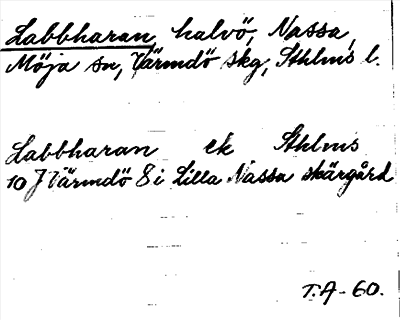 Labbharan, halvö, Nassa,
Möja sn, Värmdö skg, Sthlms l.
Labbharan ek Sthlms
10 J Värmdö 8 i Lilla Nassa skärgård
T.A-60.